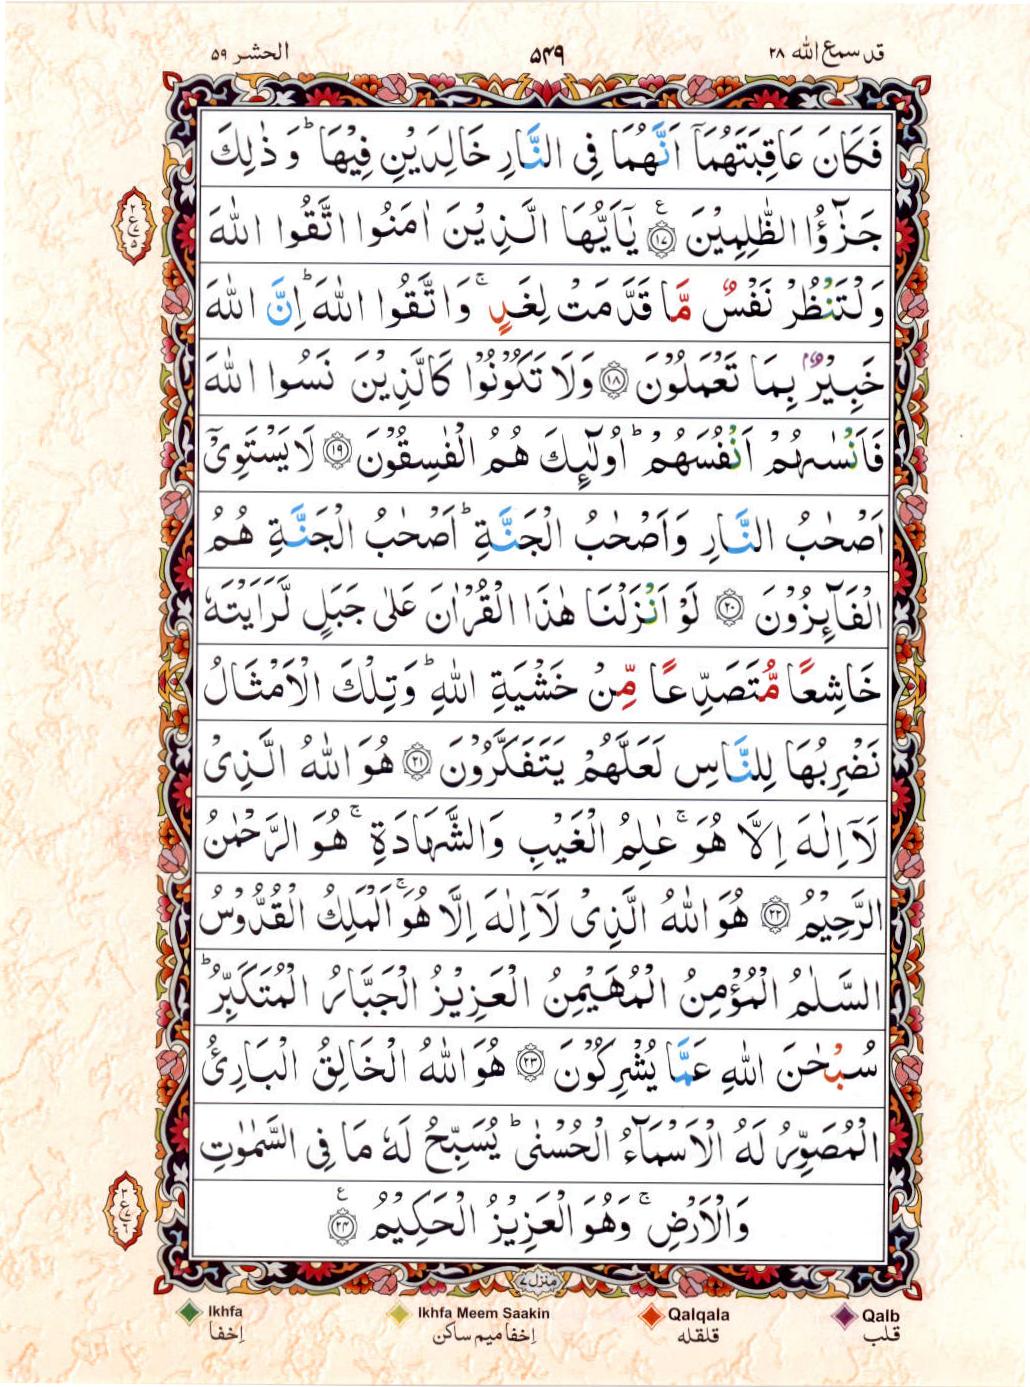 قد سمع الله ۲۸
۵۴۹
الحشر ۵۹
فَكَانَ عَاقِبَتَهُمَاۤ اَنَّهُمَا فِی النَّارِ خَالِدَیْنِ فِیْهَا ؕ وَ ذٰلِكَ
جَزٰٓؤُا الظّٰلِمِیْنَ ﴿۱۷﴾ ع یٰۤاَیُّهَا الَّذِیْنَ اٰمَنُوا اتَّقُوا اللّٰهَ
وَلْتَنْظُرْ نَفْسٌ مَّا قَدَّمَتْ لِغَدٍ ۚ وَاتَّقُوا اللّٰهَ ؕ اِنَّ اللّٰهَ
خَبِیْرٌۢ بِمَا تَعْمَلُوْنَ ﴿۱۸﴾ وَلَا تَكُوْنُوْا كَالَّذِیْنَ نَسُوا اللّٰهَ
فَاَنْسٰىهُمْ اَنْفُسَهُمْ ؕ اُولٰٓئِكَ هُمُ الْفٰسِقُوْنَ ﴿۱۹﴾ لَا یَسْتَوِیْۤ
اَصْحٰبُ النَّارِ وَاَصْحٰبُ الْجَنَّةِ ؕ اَصْحٰبُ الْجَنَّةِ هُمُ
الْفَآئِزُوْنَ ﴿۲۰﴾ لَوْ اَنْزَلْنَا هٰذَا الْقُرْاٰنَ عَلٰی جَبَلٍ لَّرَاَیْتَهٗ
خَاشِعًا مُّتَصَدِّعًا مِّنْ خَشْیَةِ اللّٰهِ ؕ وَتِلْكَ الْاَمْثَالُ
نَضْرِبُهَا لِلنَّاسِ لَعَلَّهُمْ یَتَفَكَّرُوْنَ ﴿۲۱﴾ هُوَ اللّٰهُ الَّذِیْ
لَاۤ اِلٰهَ اِلَّا هُوَ ۚ عٰلِمُ الْغَیْبِ وَالشَّهَادَةِ ۚ هُوَ الرَّحْمٰنُ
الرَّحِیْمُ ﴿۲۲﴾ هُوَ اللّٰهُ الَّذِیْ لَاۤ اِلٰهَ اِلَّا هُوَ ۚ اَلْمَلِكُ الْقُدُّوْسُ
السَّلٰمُ الْمُؤْمِنُ الْمُهَیْمِنُ الْعَزِیْزُ الْجَبَّارُ الْمُتَكَبِّرُ ؕ
سُبْحٰنَ اللّٰهِ عَمَّا یُشْرِكُوْنَ ﴿۲۳﴾ هُوَ اللّٰهُ الْخَالِقُ الْبَارِئُ
الْمُصَوِّرُ لَهُ الْاَسْمَآءُ الْحُسْنٰی ؕ یُسَبِّحُ لَهٗ مَا فِی السَّمٰوٰتِ
وَالْاَرْضِ ۚ وَهُوَ الْعَزِیْزُ الْحَكِیْمُ ﴿۲۴﴾ ع
منزل ۷
Ikhfa
اِخفا
Ikhfa Meem Saakin
اِخفا میم ساکن
Qalqala
قلقله
Qalb
قلب